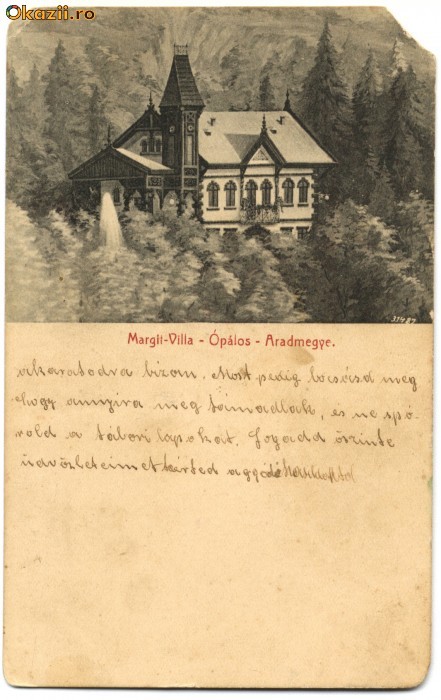 Okazii.ro
33487
Margit-Villa - Ópálos - Aradmegye.
akaratodra bizom. Most pedig bocsásd meg
hogy annyira meg támadlak, és ne spó
rold a tábori lapokat. Fogadd őszinte
üdvözleteimet kérted aggódó